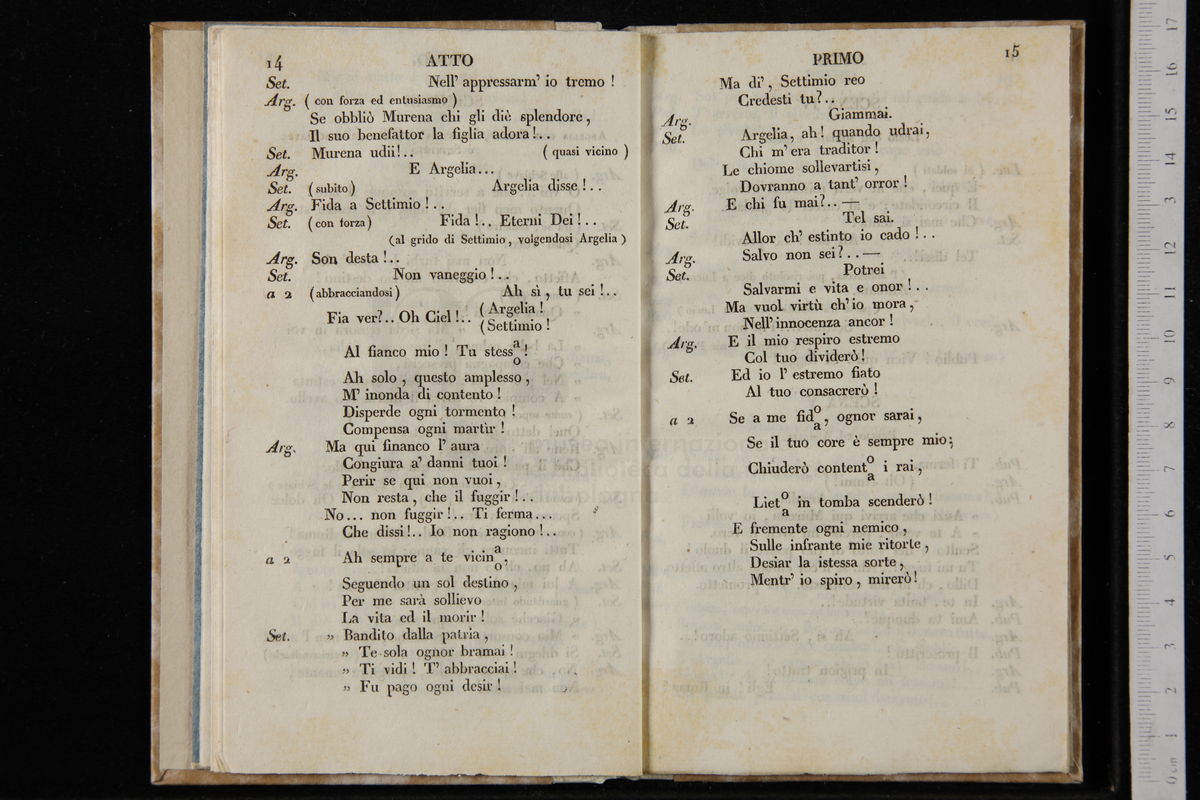 14 ATTO
Set. Nell' appressarm' io tremo !
Arg. ( con forza ed entusiasmo )
Se obbliò Murena chi gli diè splendore ,
Il suo benefattor la figlia adora !..
Set. Murena udii !.. ( quasi vicino )
Arg. E Argelia...
Set. ( subito ) Argelia disse ! . .
Arg. Fida a Settimio ! . .
Set. ( con forza ) Fida !.. Eterni Dei ! . .
( al grido di Settimio , volgendosi Argelia )
Arg. Son desta ! . .
Set. Non vaneggio ! . .
a 2 ( abbracciandosi ) Ah sì , tu sei ! . .
Fia ver?.. Oh Ciel !.. ( Argelia !
( Settimio !
Al fianco mio ! Tu stess a o !
Ah solo , questo amplesso ,
M' inonda di contento !
Disperde ogni tormento !
Compensa ogni martìr !
Arg. Ma qui financo l' aura
Congiura a' danni tuoi !
Perir se qui non vuoi ,
Non resta , che il fuggir ! . .
No... non fuggir !.. Ti ferma...
Che dissi !.. Io non ragiono ! . .
a 2 Ah sempre a te vicin a o ,
Seguendo un sol destino ,
Per me sarà sollievo
La vita ed il morir !
Set. » Bandito dalla patria ,
» Te sola ognor bramai !
» Ti vidi ! T' abbracciai !
» Fu pago ogni desir !
PRIMO 15
Ma di' , Settimio reo
Credesti tu ?. .
Arg. Giammai.
Set. Argelia , ah ! quando udrai ,
Chi m' era traditor !
Le chiome sollevartisi ,
Dovranno a tant' orror !
Arg. E chi fu mai?.. —
Set. Tel sai.
Allor ch' estinto io cado ! . .
Arg. Salvo non sei ? . . —
Set. Potrei
Salvarmi e vita e onor ! . .
Ma vuol virtù ch' io mora ,
Nell' innocenza ancor !
Arg. E il mio respiro estremo
Col tuo dividerò !
Set. Ed io l' estremo fiato
Al tuo consacrerò !
a 2 Se a me fid o a , ognor sarai ,
Se il tuo core è sempre mio ;
Chiuderò content o a i rai ,
Liet o a in tomba scenderò !
E fremente ogni nemico ,
Sulle infrante mie ritorte ,
Desiar la istessa sorte ,
Mentr' io spiro , mirerò !
0 cm 1 2 3 4 5 6 7 8 9 10 11 12 13 14 15 16 17